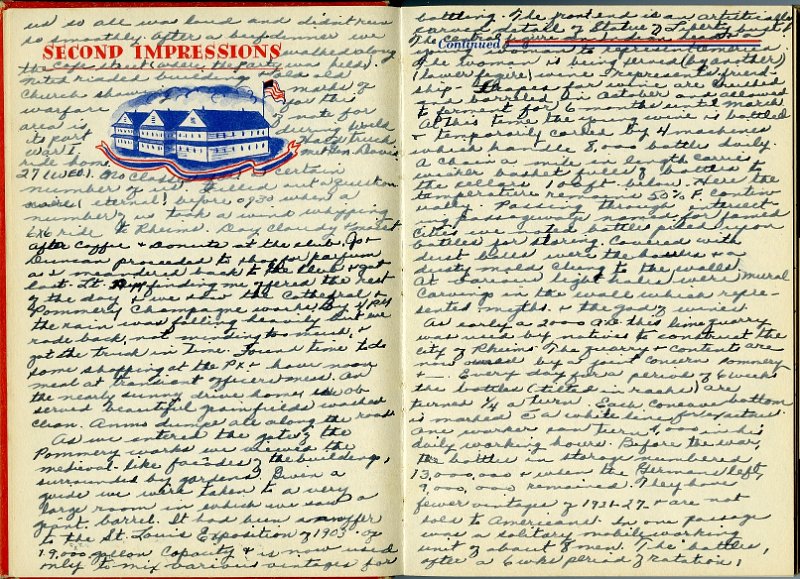 us so all was loud and didn't run
so smoothly. After a beef dinner we
SECOND IMPRESSIONS
walked along
the street (where the party was held).
Noted ruined buildings & old old
Church showing marks of
warfare for the
area is note for
its part during World
War I. Had truck
ride home.
27 (WED). No Class certain
number of us filled out a question
naire (eternal) before 0930 when a
number of us took a wind whipping
6x6 ride to Rheims. Day cloudy & moist
After Coffee & Donuts at the club, Jo &
Duncan proceeded to shop for parfum
as I meandered back to the club & got
lost. Lt. finding me offered the rest
of the day & we saw the Cathedral &
Pommery Champagne works. By 4 PM
the rain was falling heavily but we
rode back, not minding too much, &
got the truck in time. Found time to do
some shopping at the PX & have noon
meal at transient officers mess. On
the nearly sunny drive home, we ob
served beautiful grainfields washed
clean. Ammo dumps are along the road.
As we entered the gates of the
Pommery works we viewed the
medieval-like facades of the buildings,
surrounded by gardens. Given a
guide we were taken to a very
large room in which we saw a
giant barrel. It had been an offer
to the St. Louis Exposition of 1903 - of
19,000 gallon capacity & is now used
only to mix various vintages for
bottling. The front end is an artistically
carving, detail of Statue of Liberty, bust
Continued
The central figure
woman to represent America.
The woman is being served (by another)
(lower figure) wine. Represents friend-
ship. Grapes for wine are crushed
& barreled in October and allowed
to ferment for 6 months until March.
At this time the young wine is bottled
& temporarily corked by 4 machines
which handle 8,000 bottles daily.
A chain a mile in length carries
wicker basket fulls of bottles to
the cellars 100 ft below. Here the
temperature remains 50° F. contin
ually. Passing through intersect-
ing passageways named for famed
Cities we noted bottles piled upon
bottles for storing. Covered with
dust balls were the bottles & a
dusty mold clung to the walls.
At various light holes were mural
Carvings in the wall which repre-
sented myths & the god of wines.
As early as 2000 this lime quarry
was used by natives to construct the
city of Rheims. The quarry & contents are
now used by wine concern Pommery
& Every day for a period of 6 weeks
the bottles (tilted in racks) are
turned 1/4 a turn. Each concave bottom
is marked c̄ a white line for
One worker can turn in his
daily working hours. Before the war,
the bottles in storage numbered
13,000,000 & when the Germans left,
9,000,000 remained. They have
fewer vintages of 1931-27 & are not
sold to Americans. In one passage
was a solitary mobile working
unit of about 8 men. The bottles,
after a 6 wks period of rotation,